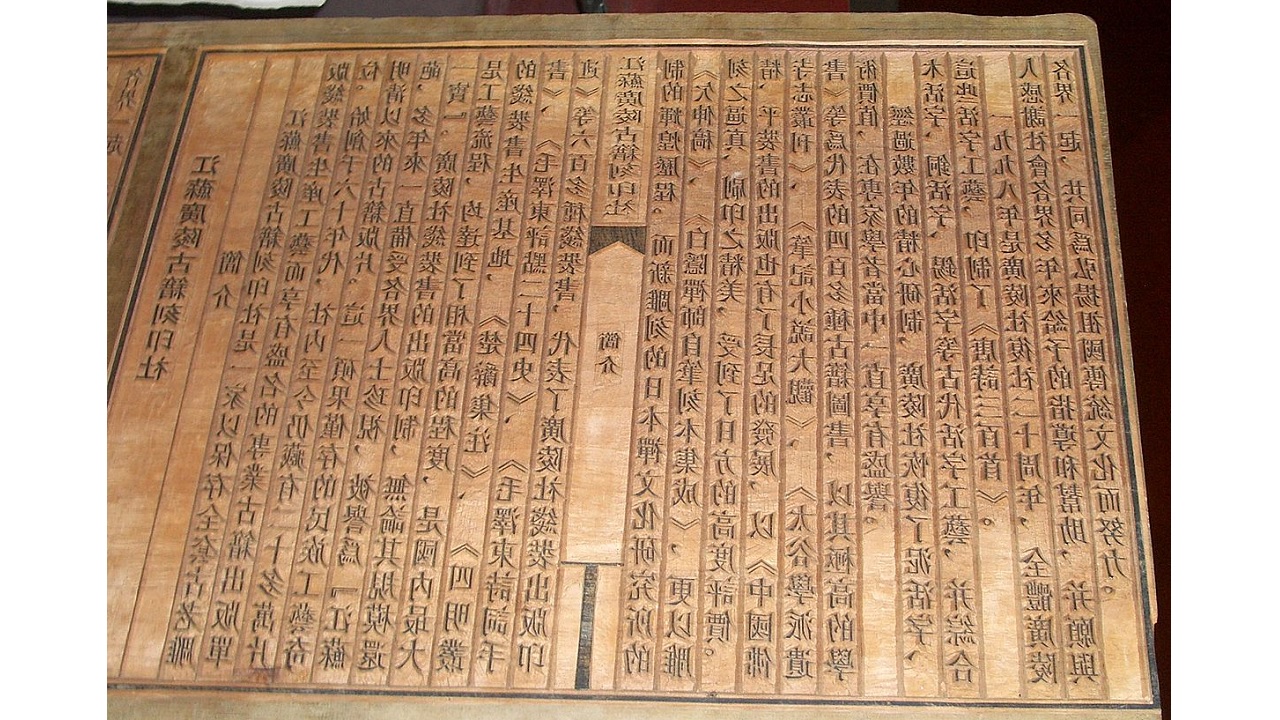 江蘇廣陵古籍刻印社
簡介
江蘇廣陵古籍刻印社是一家以保存全套古老雕
版綫裝書生産工藝而享有盛名的專業古籍出版單
位。始創于六十年代，社内至今仍藏有二十多萬片
明清以來的古籍版片。這一碩果僅存的民族工藝奇
葩，多年來一直備受各界人士珍視，被譽爲『江蘇
一寶』。廣陵社綫裝書的出版印制，無論其規模還
是工藝流程，均達到了相當高的程度，是國内最大
的綫裝書生産基地，《楚辭集注》、《四明叢
書》、《毛澤東評點二十四史》、《毛澤東詩詞手
迹》等六百多種綫裝書，代表了廣陵社綫裝出版印
江蘇廣陵古籍刻印社
簡介
制的輝煌歷程。而新雕刻的日本禪文化研究所的
《欠伸稿》、《白隱禪師自筆刻本集成》，更以雕
刻之逼真、刷印之精美，受到了日方的高度評價。
精、平裝書的出版也有了長足的發展，以《中國佛
寺志叢刊》、《筆記小説大觀》、《太谷學派遺
書》等爲代表的四百多種古籍圖書，以其極高的學
術價值，在專家學者當中一直享有盛譽。
經過數年的精心研制，廣陵社恢復了泥活字、
木活字、銅活字、錫活字等古代活字工藝，并綜合
這些活字工藝，印制了《唐詩三百首》。
一九九八年是廣陵社復社二十周年，全體廣陵
人感謝社會各界多年來給予的指導和幫助，并願與
各界一起，共同爲弘揚祖國傳統文化而努力。